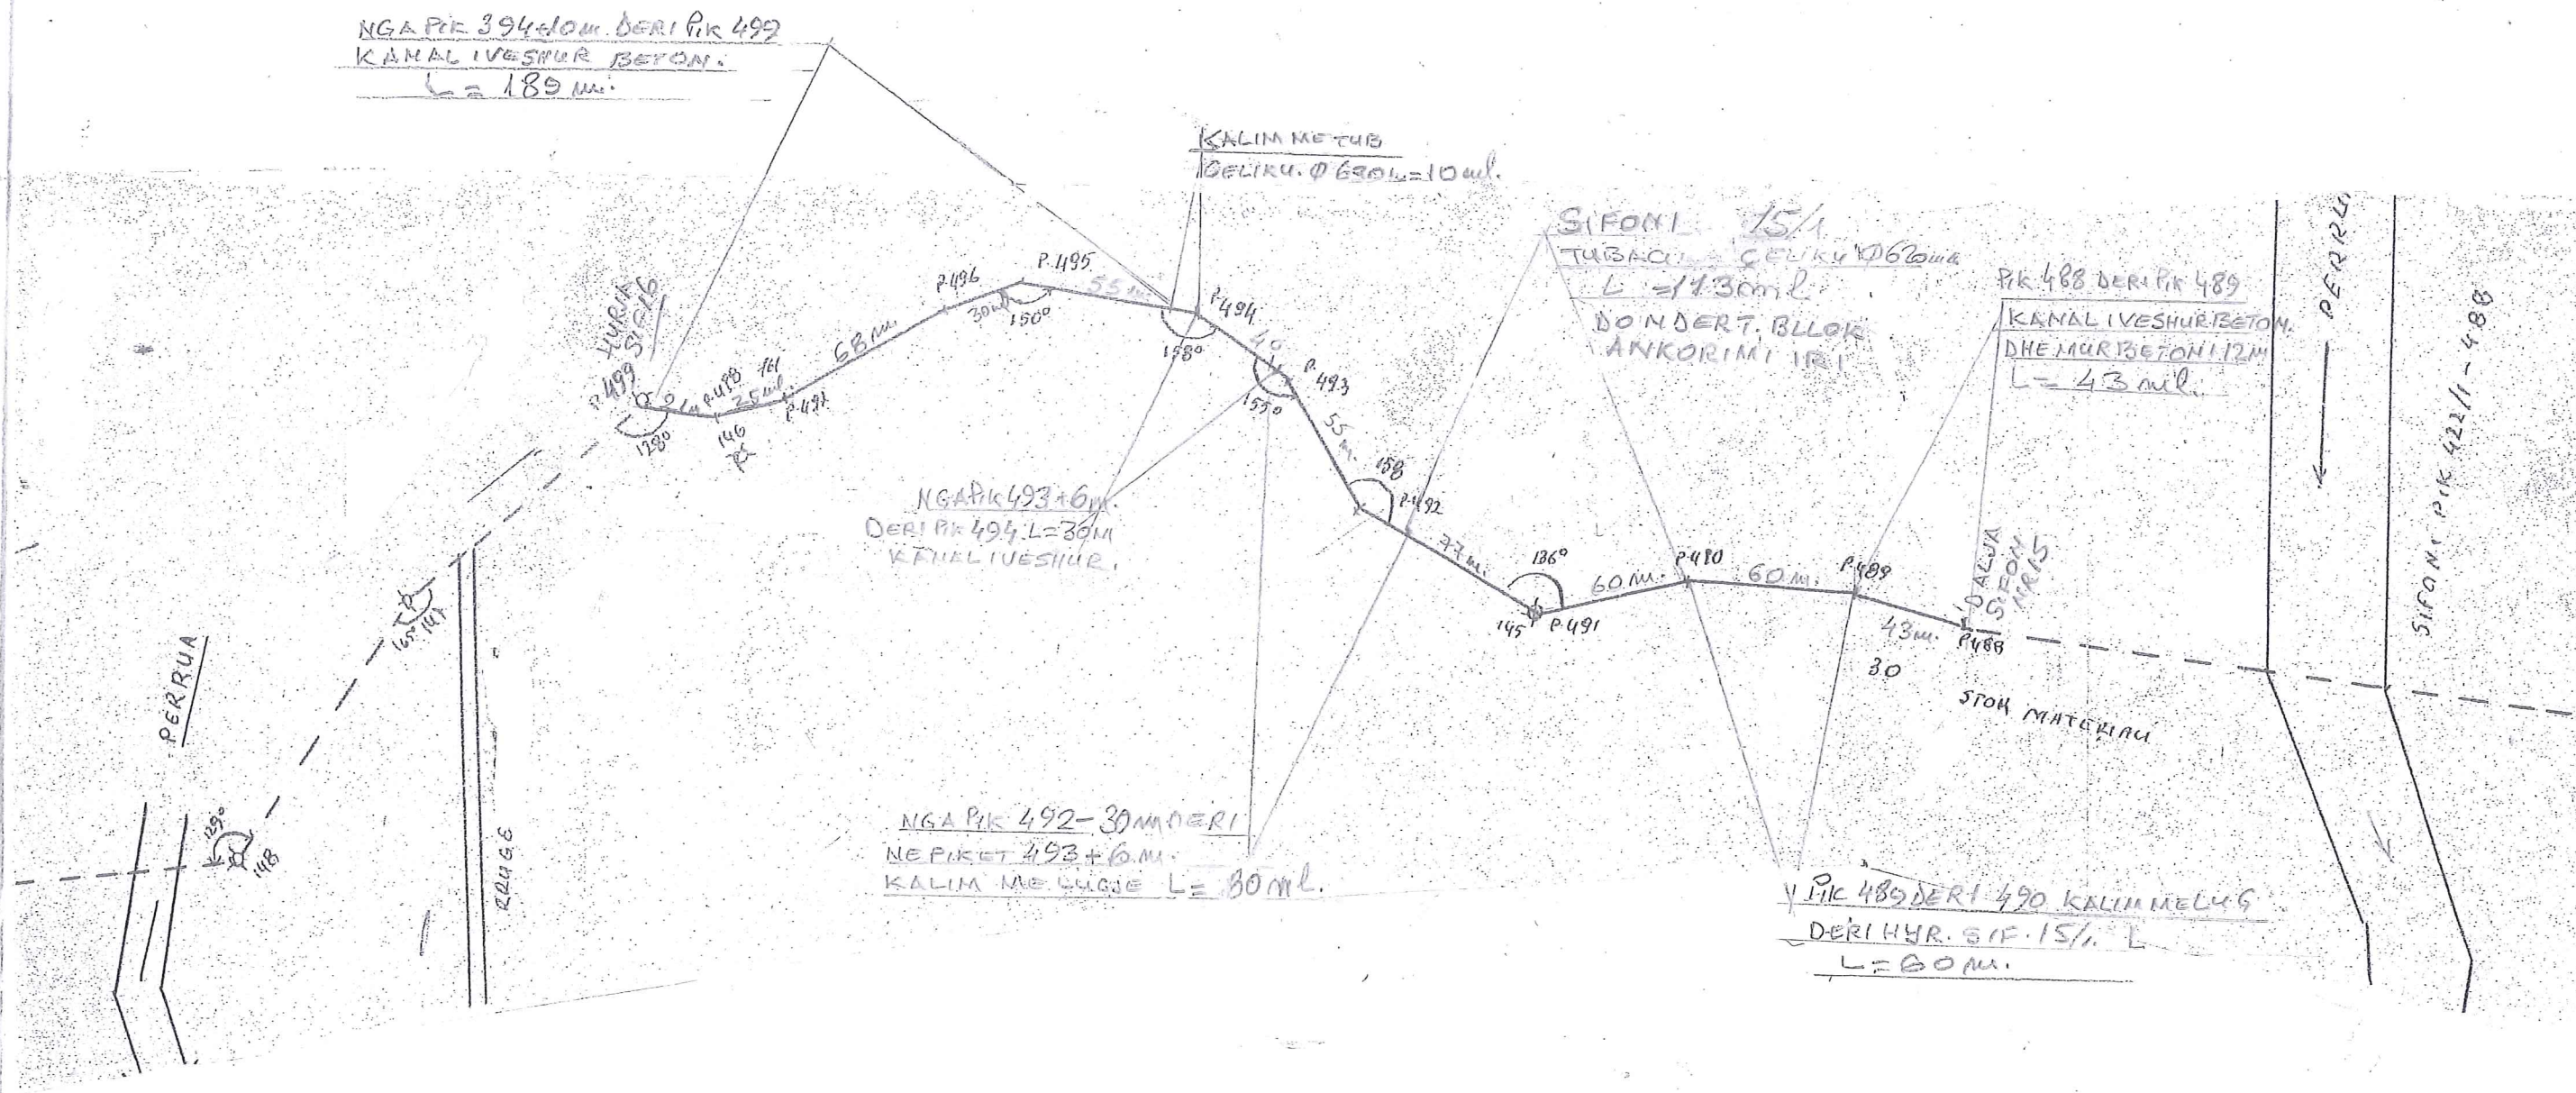 NGA PIK 394+10m. DERI PIK 499
KANAL I VESHUR BETON.
L = 189 m.
KALIM ME TUB
ÇELIKU. Φ 630 L=10 ml.
SIFONI 15/1
TUBACI ÇELIKU Φ620mm
L = 113 ml
DO NDERT. BLLOK
ANKORIMI I RI
PIK 488 DERI PIK 489
KANAL I VESHUR BETON.
DHE MUR BETONI 12M
L = 43 ml.
PERRU
SIFONI PIK 422/1 - 488
HURJA
SIF 16
P.499
128°
P.498
25ml
146
P.497
68 m.
P.496
30m
150°
P.495
55 m
P.494
158°
40
P.493
155°
55 m.
158
P.492
77 m.
136°
145
P.491
60 m.
P.490
60 m.
P.489
43 m.
P.488
DALJA
SIFON
NR15
30
STOK MATERIAL
NGA PIK 493+6m.
DERI PIK 494 L=30M
KANAL I VESHUR.
165°
147
PERRUA
129°
148
RRUGE
NGA PIK 492-30m DERI
NE PIKET 493+6 m.
KALIM ME LUGJE L= 30 ml.
PIK 489 DERI 490 KALIM ME LUG
DERI HYR. SIF. 15/1. L
L = 60 m.